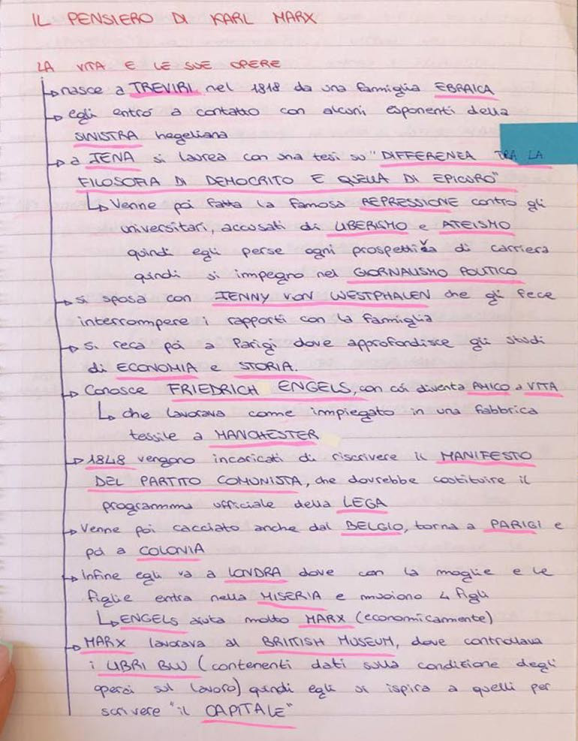 IL PENSIERO DI KARL MARX
LA VITA E LE SUE OPERE
nasce a TREVIRI nel 1818 da una famiglia EBRAICA
egli entrò a contatto con alcuni esponenti della
SINISTRA hegeliana
a JENA si laurea con una tesi su "DIFFERENZA TRA LA
FILOSOFIA DI DEMOCRITO E QUELLA DI EPICURO"
Venne poi fatta la famosa REPRESSIONE contro gli
universitari, accusati di LIBERISMO e ATEISMO
quindi egli perse ogni prospettiva di carriera
quindi si impegno nel GIORNALISMO POLITICO
si sposa con JENNY VON WESTPHALEN che gli fece
interrompere i rapporti con la famiglia
si reca poi a Parigi dove approfondisce gli studi
di ECONOMIA e STORIA.
Conosce FRIEDRICH ENGELS, con cui diventa AMICO a VITA
che lavorava come impiegato in una fabbrica
tessile a MANCHESTER
1848 vengono incaricati di riscrivere il MANIFESTO
DEL PARTITO COMUNISTA, che dovrebbe costituire il
programma ufficiale della LEGA
Venne poi cacciato anche dal BELGIO, torna a PARIGI e
poi a COLONIA
Infine egli va a LONDRA dove con la moglie e le
figlie entra nella MISERIA e muoiono 4 figli
ENGELS aiuta molto MARX (economicamente)
MARX lavorava al BRITISH MUSEUM, dove controllava
i LIBRI BLU (contenenti dati sulla condizione degli
operai sul lavoro) quindi egli si ispira a quelli per
scrivere "il CAPITALE"